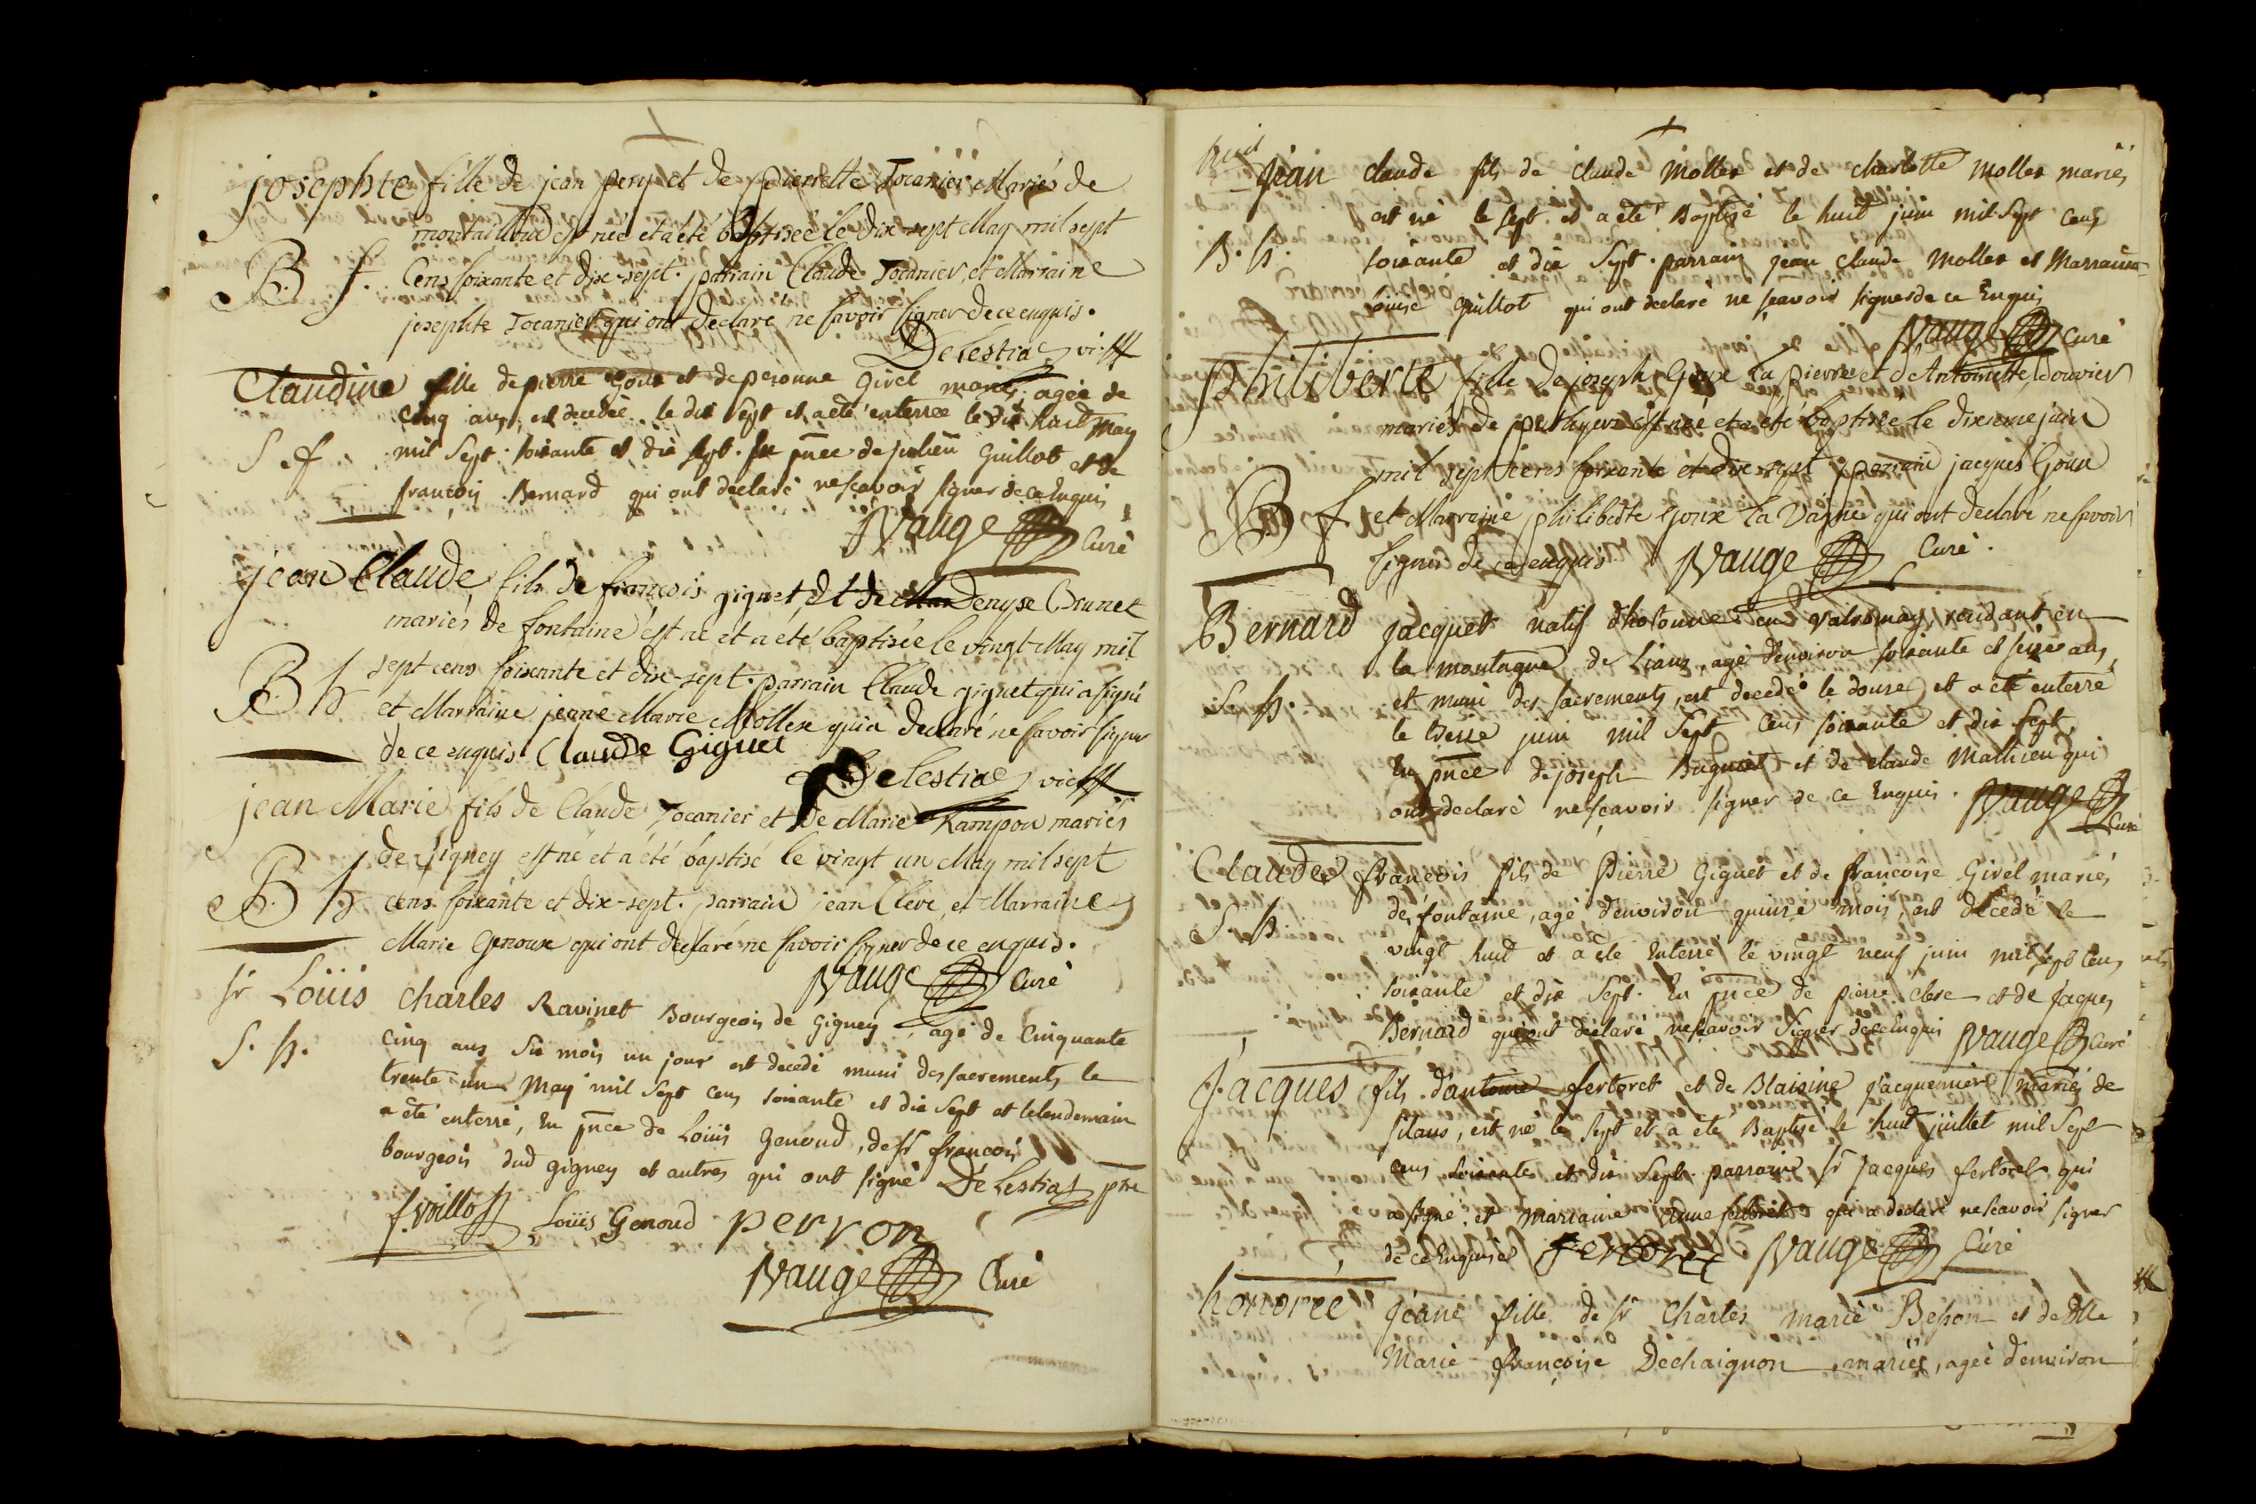 josephte fille de jean pery et de pierrette Tocanier Mariés de
montailloud est née et a été baptisée le dix-sept May mil sept
B. f. Cens soixante et dix-sept. parrain Claude Tocanier, et Marraine
josephte Tocanier qui ont declaré ne savoir signer de ce enquis.
Delestraz vic.
Claudine fille de pierre Goux et de peronne Girel mariés, agée de
Cinq ans, est decedée le dix sept et a été enterrée le dix huit May
S. f. mil Sept soixante et dix sept. en pnce de julien Guillot et de
francois Bernard qui ont declaré ne scavoir signer de ce Enquis
Nauge Curé
jean Claude fils de françois giguet et de Denyse Brunet
mariés de fontaine est né et a été baptisée le vingt May mil
B h sept cens soixante et dix-sept. parrain Claude giguet qui a signé
et Marraine jeane Marie Mollex qui a declaré ne savoir signer
de ce enquis. Claude Giguet
Delestraz vic.
jean Marie fils de Claude Tocanier et de Marie Rampon mariés
de gigney est né et a été baptisé le vingt un May mil sept
B. h cens soixante et dix-sept. parrain jean Cleve, et Marraine
Marie Genoux qui ont declaré ne savoir signer de ce enquis.
Nauge Curé
Sr Loüis Charles Ravinet Bourgeois de Gigney, agé de Cinquante
S. h. Cinq ans Six mois un jour est decedé muni des sacrements le
trente un May mil Sept Cens soixante et dix sept et lelendemain
a été enterré, En pnce de Loüis Genoud, de sr francois
bourgeois dud gigney et autres qui ont signé Delestraz ptre
Loüis Genoud perron
Nauge Curé
huit
Jean claude fils de claude Mollex et de charlotte mollex mariés
est né le sept et a été Baptizé le huit juin mil Sept Cens
B. h. soixante et dix Sept. parrain jean claude Mollex et Marraine
Loüise Guillot qui ont declaré ne scavoir signer de ce Enquis
Nauge Curé
Philiberte fille de joseph Goux La pierre et d'Antoinette Douvier
mariés de est née et a été baptisée le dixieme juin
mil sept cens soixante et dix-sept parrain jacques Goux
B f et Marraine philiberte Goux La Vagne qui ont declaré ne savoir
signer de ce enquis Nauge Curé.
Bernard jacquet natif dhotonne en valromay, residant en
la montagne de Liaux, agé denviron soixante et seize ans,
S. h. et muni des sacrements, est decedé le douze et a été enterré
le treize juin mil Sept Cens soixante et dix sept
En pnce de joseph Buguet et de claude Mathieu qui
ont declaré ne scavoir signer de ce Enquis. Nauge Curé
Claude francois fils de Pierre Giguet et de francoise Girel mariés
de fontaine, agé denviron quinze mois, est decedé le
S. h vingt huit et a été Enterré le vingt neuf juin mil sept Cens
soixante et dix Sept. En pnce de pierre clere et de Jaques
Bernard qui ont declaré ne scavoir Signer de ce Enquis Nauge Curé
Jacques fils d'antoine fertoret et de Blaisine jacquemier mariés de
silans, est né le sept et a été Baptizé le huit juillet mil Sept
Cens soixante et dix Sept. parrain sr jacques fertoret qui
a signé et marraine Anne fertoret qui a declaré ne scavoir signer
de ce Enquise Fertoret Nauge Curé
honorée jeane fille de sr Charles marie Besson et de Dlle
Marie francoise Dechaignon mariés, agée denviron